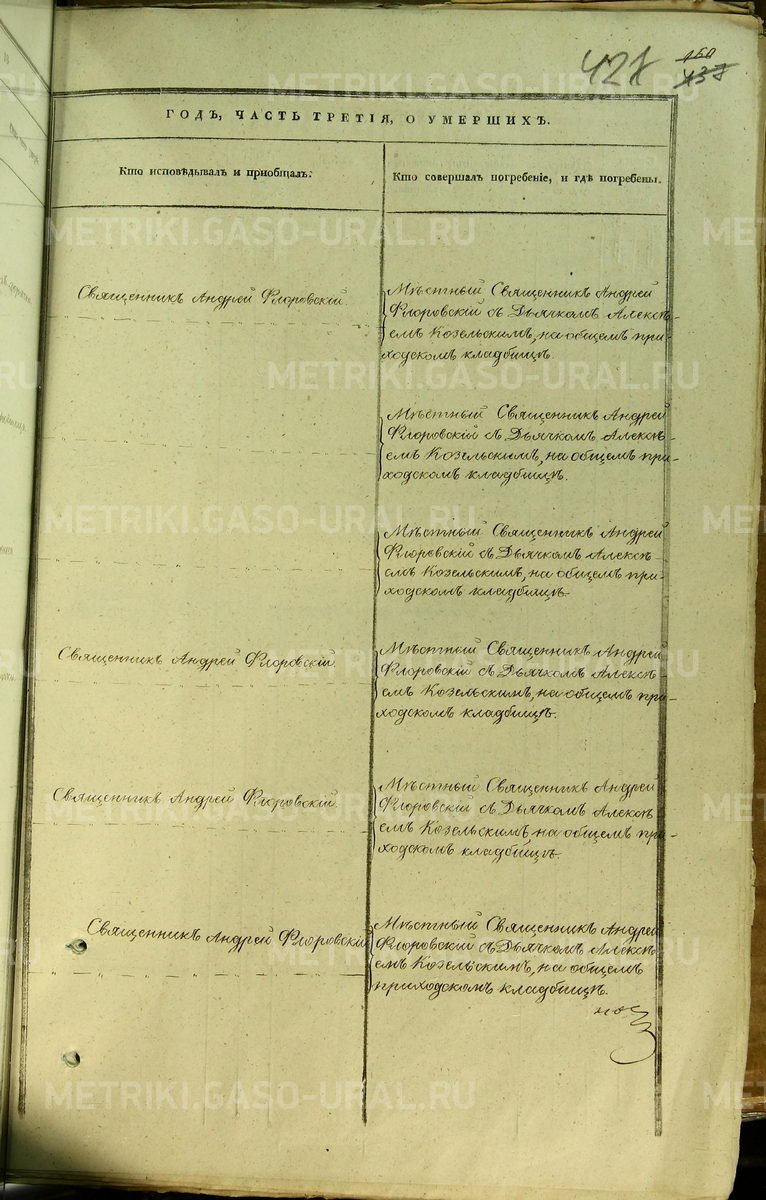 427
150
437
ГОДЪ, ЧАСТЬ ТРЕТІЯ, О УМЕРШИХЪ.
Кто исповѣдывалъ и пріобщалъ.
Кто совершалъ погребеніе, и гдѣ погребены.
Священникъ Андрей Флоровскій.
Мѣстный Священникъ Андрей
Флоровскій съ Дьячкомъ Алексѣ-
емъ Козельскимъ, на общемъ при-
ходскомъ кладбищѣ.
Мѣстный Священникъ Андрей
Флоровскій съ Дьячкомъ Алексѣ-
емъ Козельскимъ, на общемъ при-
ходскомъ кладбищѣ.
Мѣстный Священникъ Андрей
Флоровскій съ Дьячкомъ Алексѣ-
емъ Козельскимъ, на общемъ при-
ходскомъ кладбищѣ.
Священникъ Андрей Флоровскій
Мѣстный Священникъ Андрей
Флоровскій съ Дьячкомъ Алексѣ-
емъ Козельскимъ, на общемъ при-
ходскомъ кладбищѣ.
Священникъ Андрей Флоровскій.
Мѣстный Священникъ Андрей
Флоровскій съ Дьячкомъ Алексѣ-
емъ Козельскимъ на общемъ при-
ходскомъ кладбищѣ.
Священникъ Андрей Флоровскій
Мѣстный Священникъ Андрей
Флоровскій съ Дьячкомъ Алексѣ-
емъ Козельскимъ, на общемъ
приходскомъ кладбищѣ.
METRIKI.GASO-URAL.RU